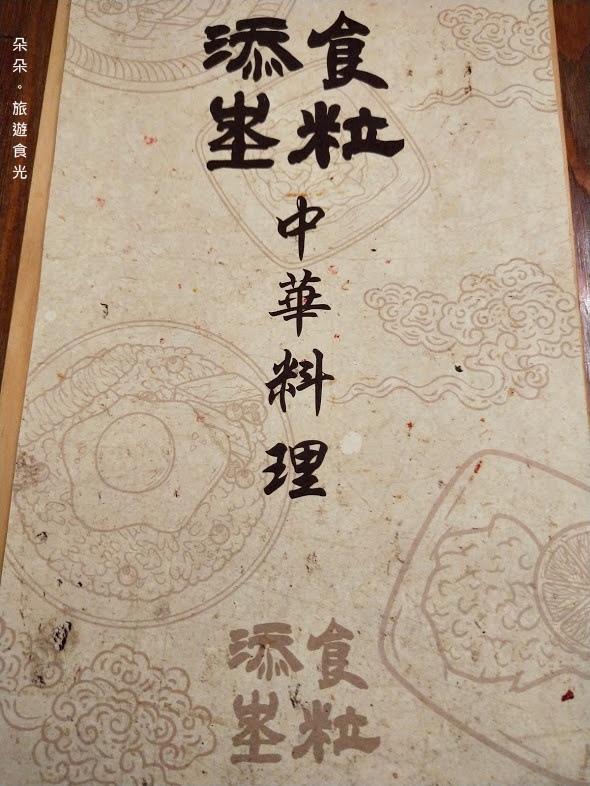 朵朵。旅遊食光
食粒
添埊
中華料理
食粒
添埊